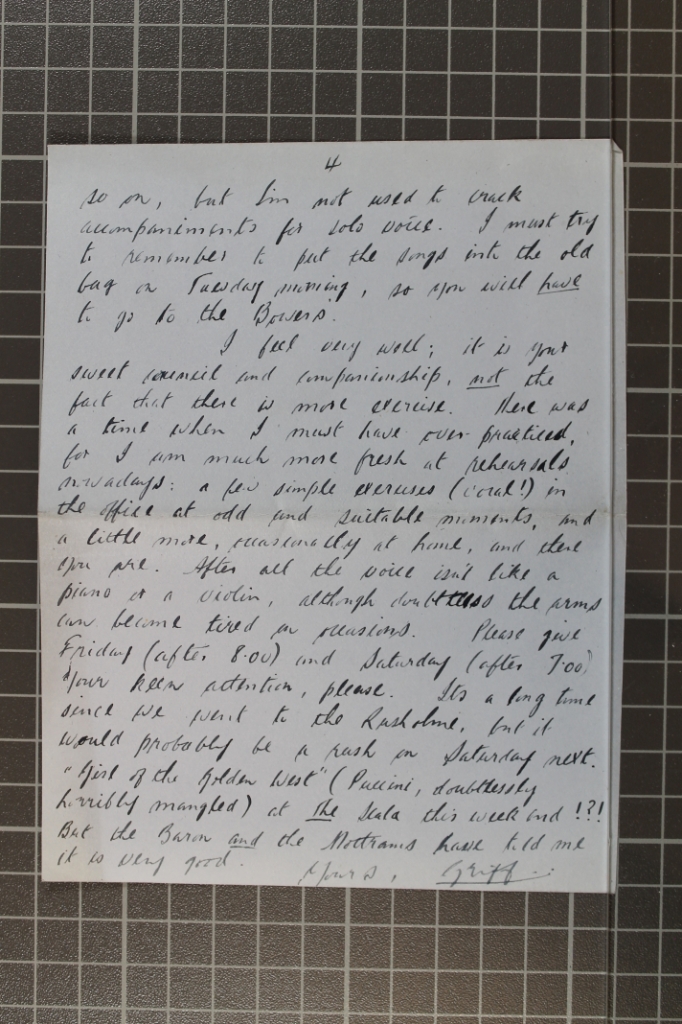 4
so on, but I'm not used to crack
accompaniments for solo voice. I must try
to remember to put the songs into the old
bag on Tuesday morning, so you will have
to go to the Bowers.
I feel very well; it is your
sweet council and companionship, not the
fact that there is more exercise. There was
a time when I must have over practiced,
for I am much more fresh at rehearsals
nowadays: a few simple exercises (vocal!) in
the office at odd and suitable moments, and
a little more, occasionally at home, and there
you are. After all the voice isn't like a
piano or a violin, although doubtless the arms
can become tired on occasions. Please give
Friday (after 8.00) and Saturday (after 7.00)
your keen attention, please. Its a long time
since we went to the Rusholme, but it
would probably be a rush on Saturday next.
"Girl of the Golden West" (Puccini, doubtlessly
horribly mangled) at The Scala this week end !?!
But the Baron and the Mottrams have told me
it is very good. Yours, Griff.